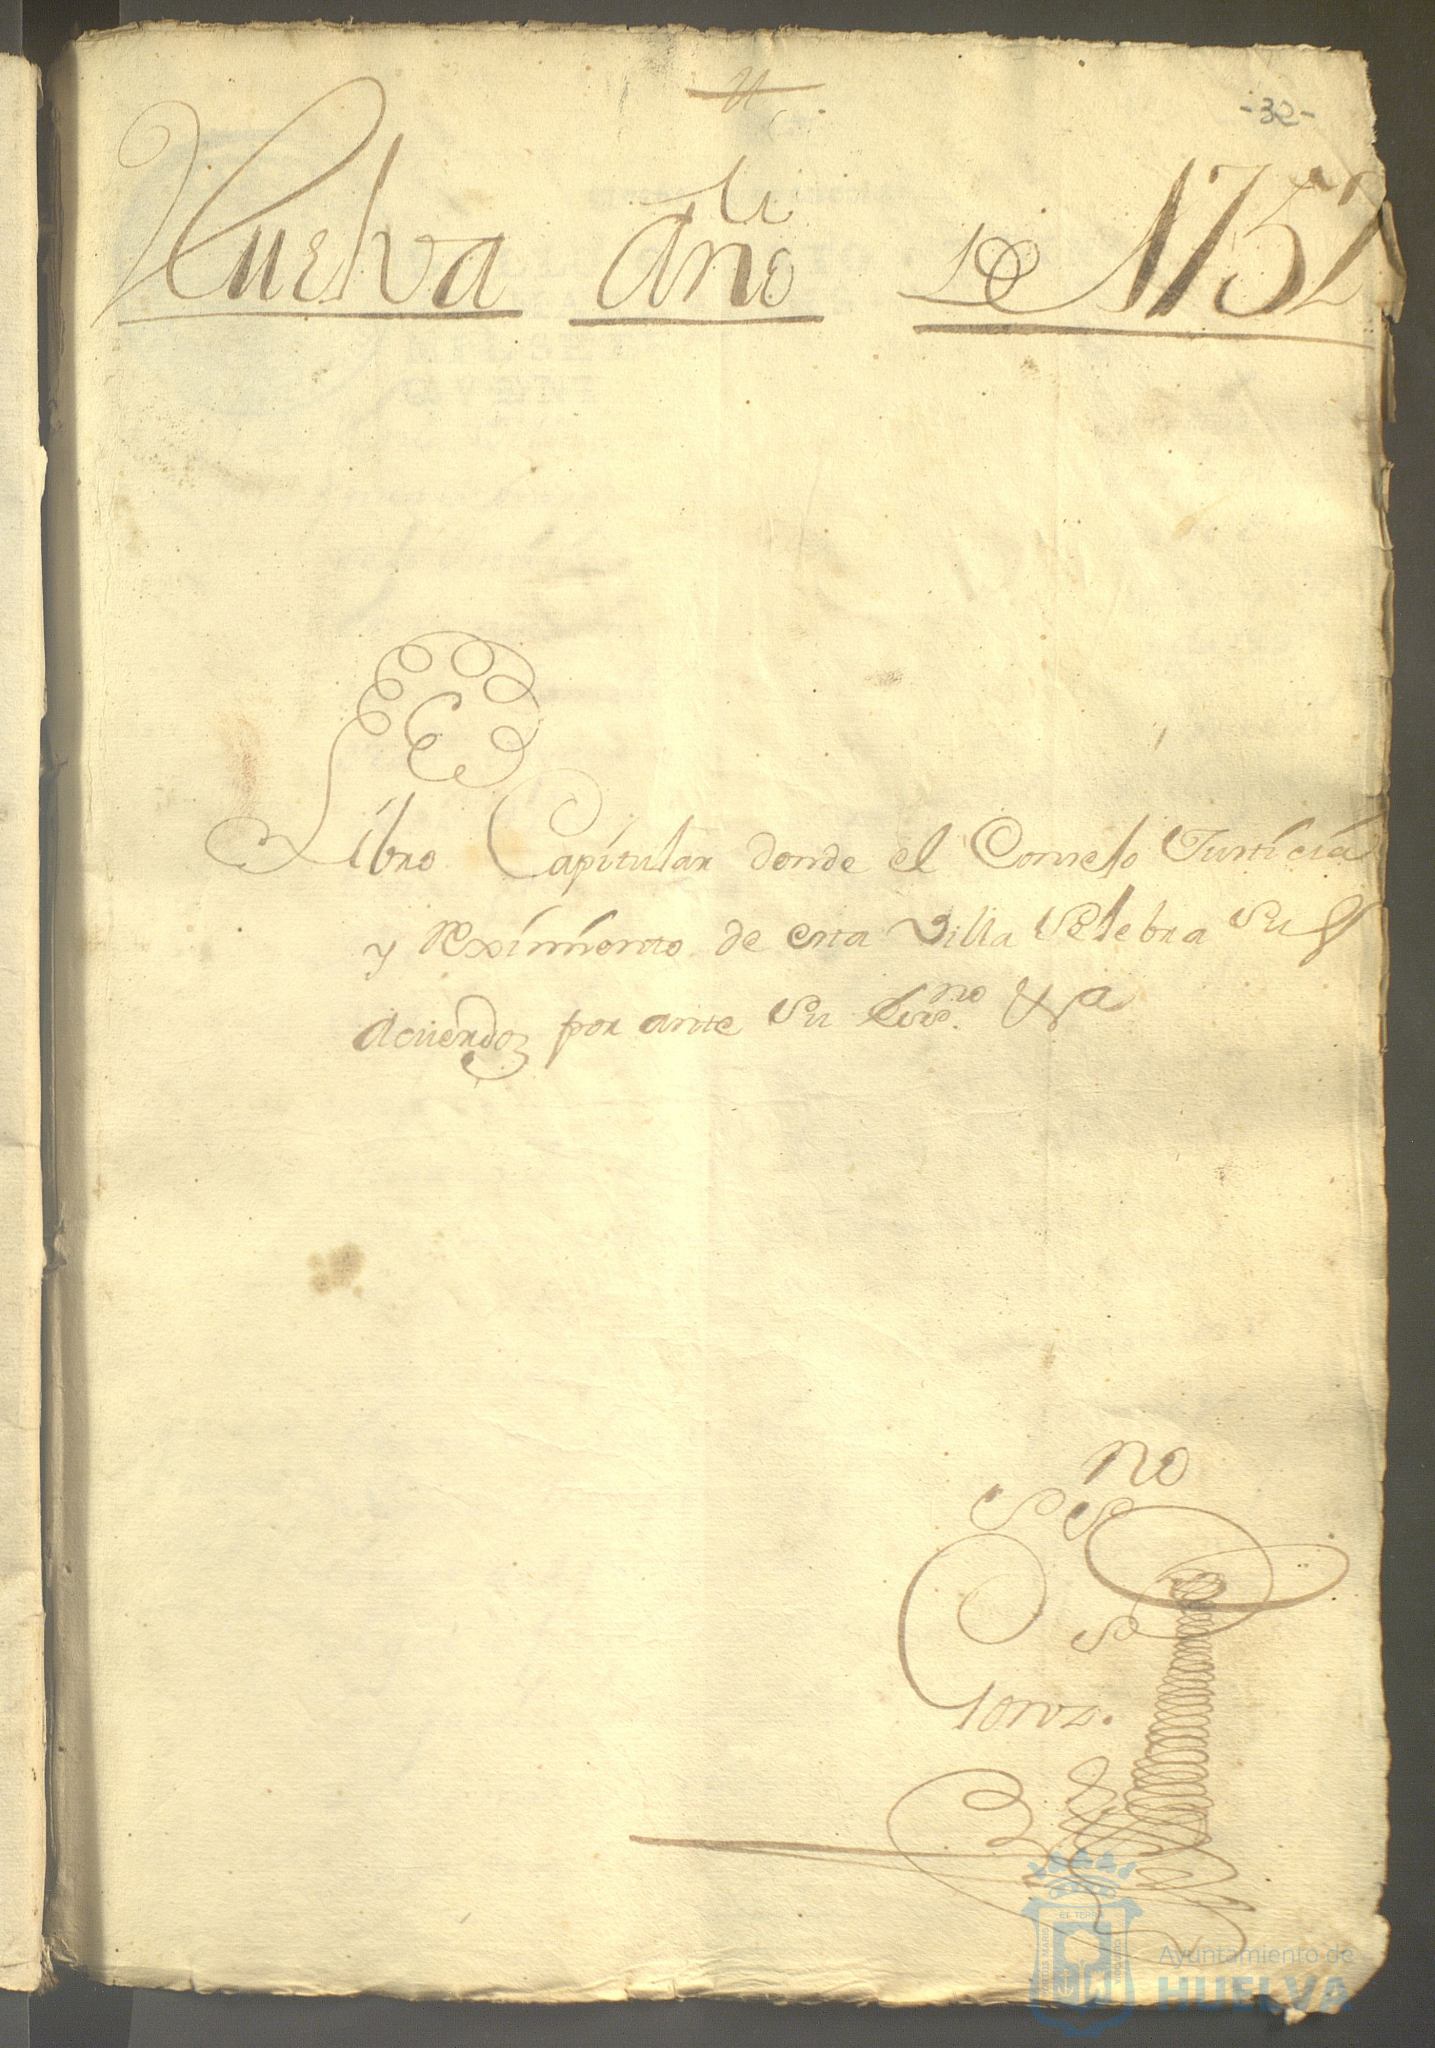 -32-
Huelva año de 1752
Libro Capitular donde el Consejo Justicia
y Reximiento de esta Villa Selebra Sus
Acuerdos por ante Su Essno &a
no
SS
Ayuntamiento de
HUELVA